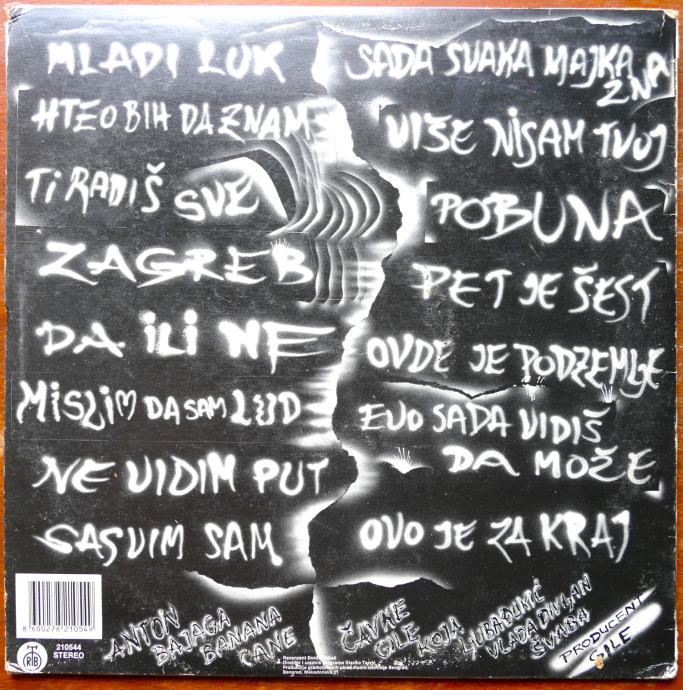 MLADI LUK
HTEO BIH DA ZNAM
Ti RADIŠ SVE
ZAGREB
DA iLi NE
MiSLiM DA SAM LUD
NE VIDIM PUT
SASVIM SAM
SADA SVAKA MAJKA ZNA
VIŠE NISAM TVOJ
POBUNA
PET JE ŠEST
OVDE JE PODZEMLJE
EVO SADA VIDIŠ
DA MOŽE
OVO JE ZA KRAJ
8600278210549
210544
STEREO
RTB
ANTON
BAJAGA
BANANA
CANE
ČAVKE
GILE
KOJA
LJUBA ĐUNIĆ
VLADA DIVLJAN
ŠVABA
PRODUCENT
GILE
Direktor i urednik programa Stanko Terzić
Produkcija gramofonskih ploča Radio televizije Beograd
Beograd, Makedonska 21